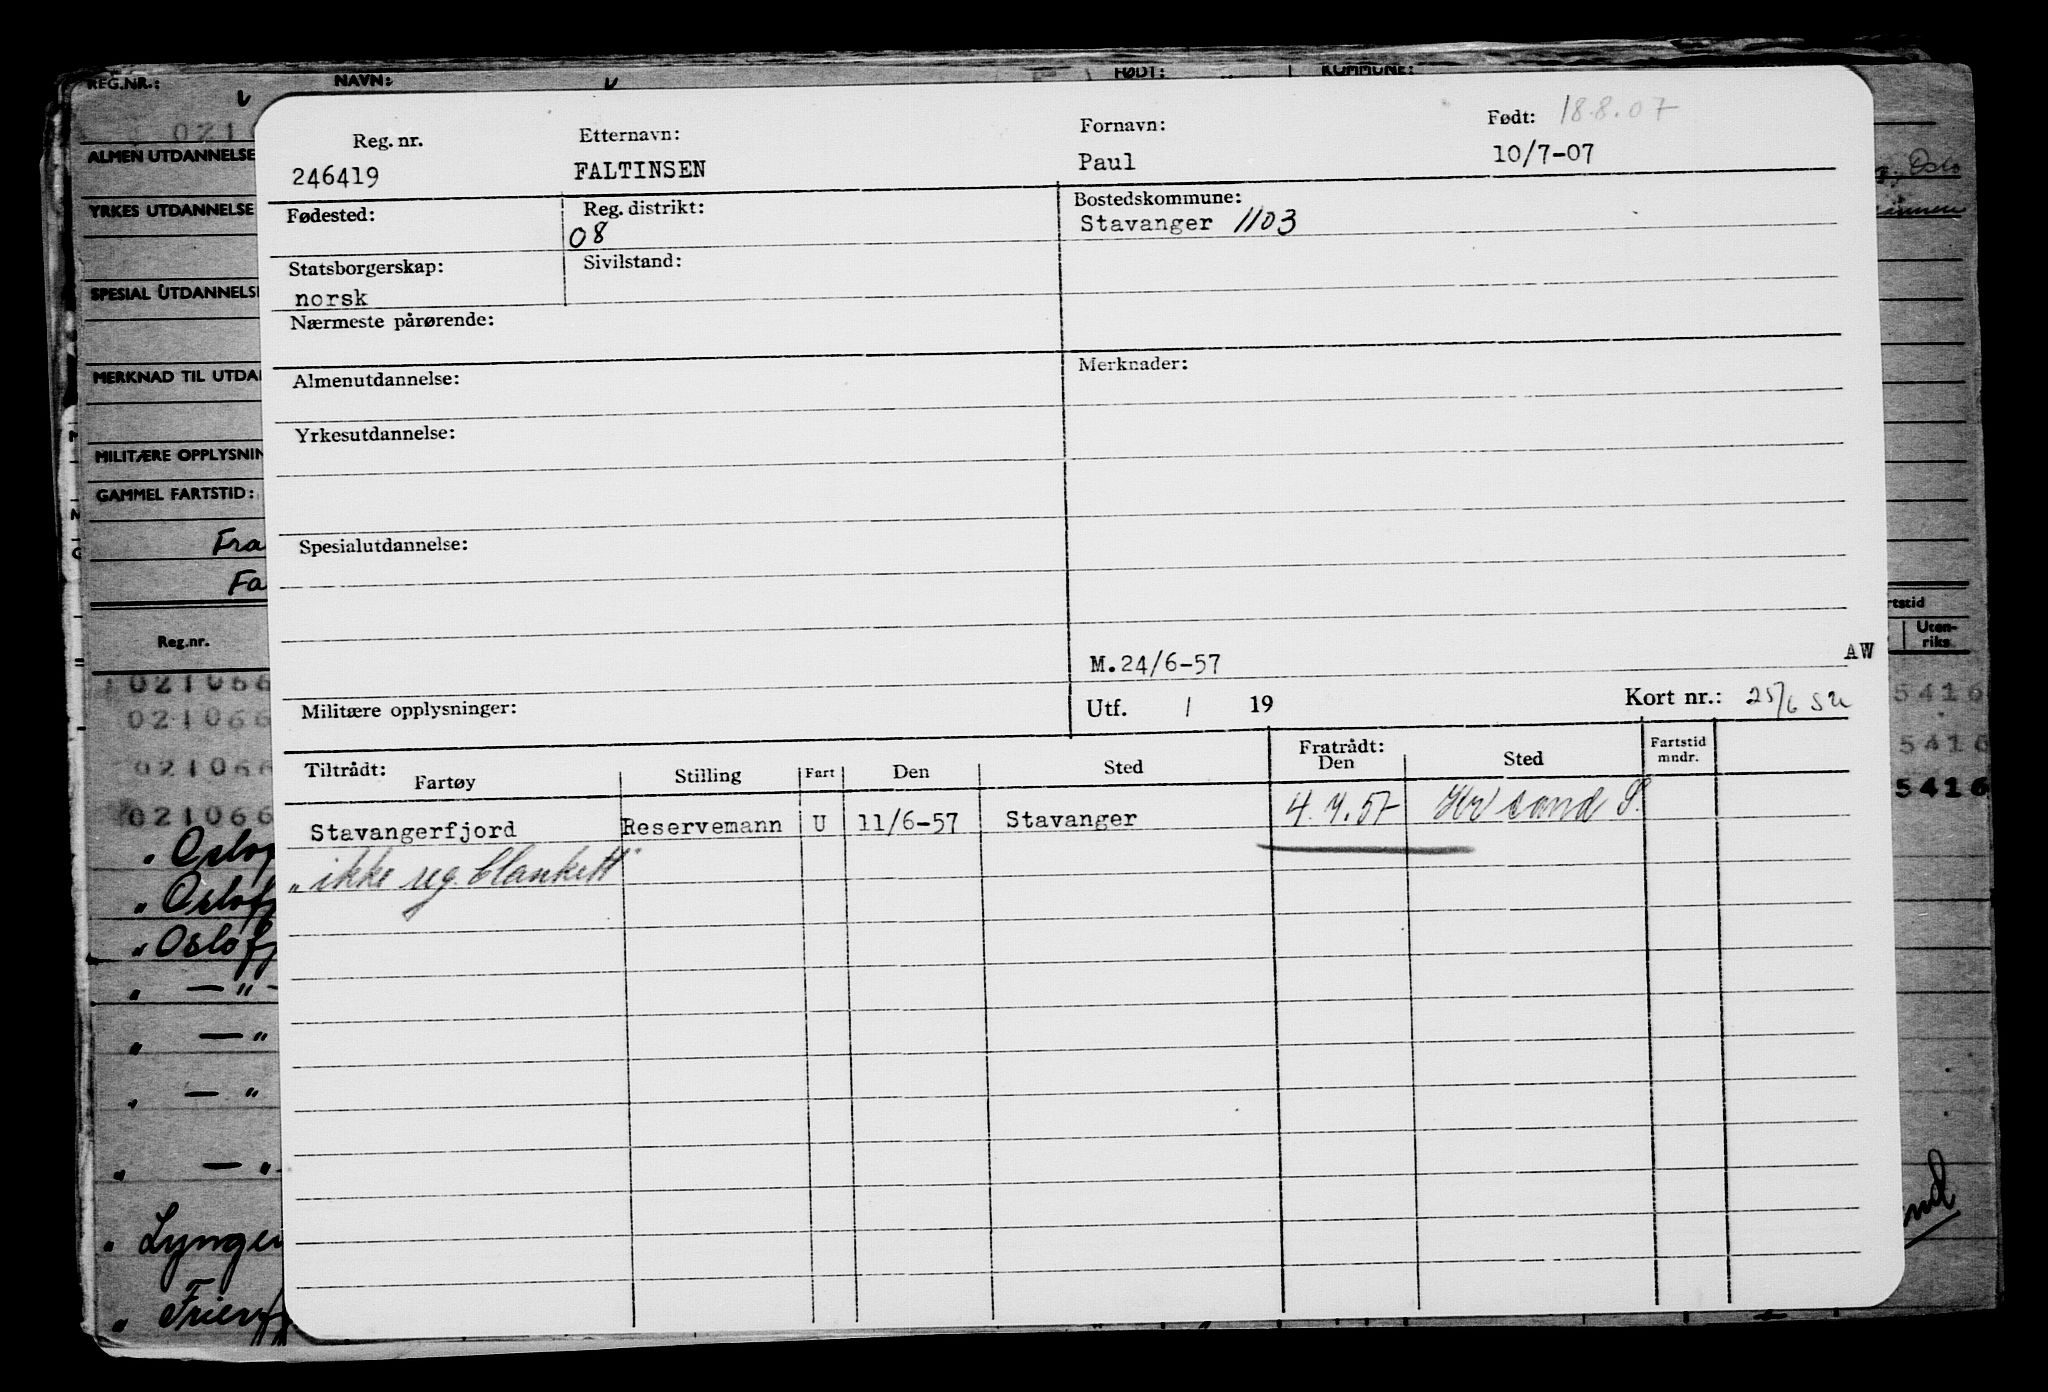 REG.NR.: NAVN: FØDT: KOMMUNE:
Reg. nr. Etternavn: Fornavn: Født: 18.8.07
246419 FALTINSEN Paul 10/7-07
Fødested: Reg. distrikt: Bostedskommune:
08 Stavanger 1103
Statsborgerskap: Sivilstand:
norsk
Nærmeste pårørende:
Almenutdannelse: Merknader:
Yrkesutdannelse:
Spesialutdannelse:
M.24/6-57 AW
Militære opplysninger: Utf. / 19 Kort nr.: 25/6
Tiltrådt: Fratrådt:
Fartøy Stilling Fart Den Sted Den Sted Fartstid mndr.
Stavangerfjord Reservemann U 11/6-57 Stavanger 4.7.57 Kr sand S.
"ikke reg. blankett"
0210
ALMEN UTDANNELSE
Oslo
YRKES UTDANNELSE
SPESIAL UTDANNELSE
MERKNAD TIL UTDA
MILITÆRE OPPLYSNIN
GAMMEL FARTSTID:
Fra
Fa
Reg.nr. rtstid
Uten-
riks
021066 5416
021066 5416
021066 5416
021066
" Oslof
" Oslof
" Oslof
" — " —
" — "
" — "
" — "
" Lyngen
" Frierf